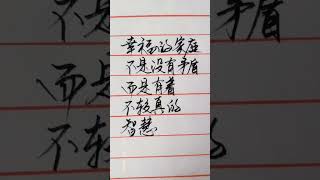 幸福的家庭
不是没有矛盾
而是有着
不较真的
智慧